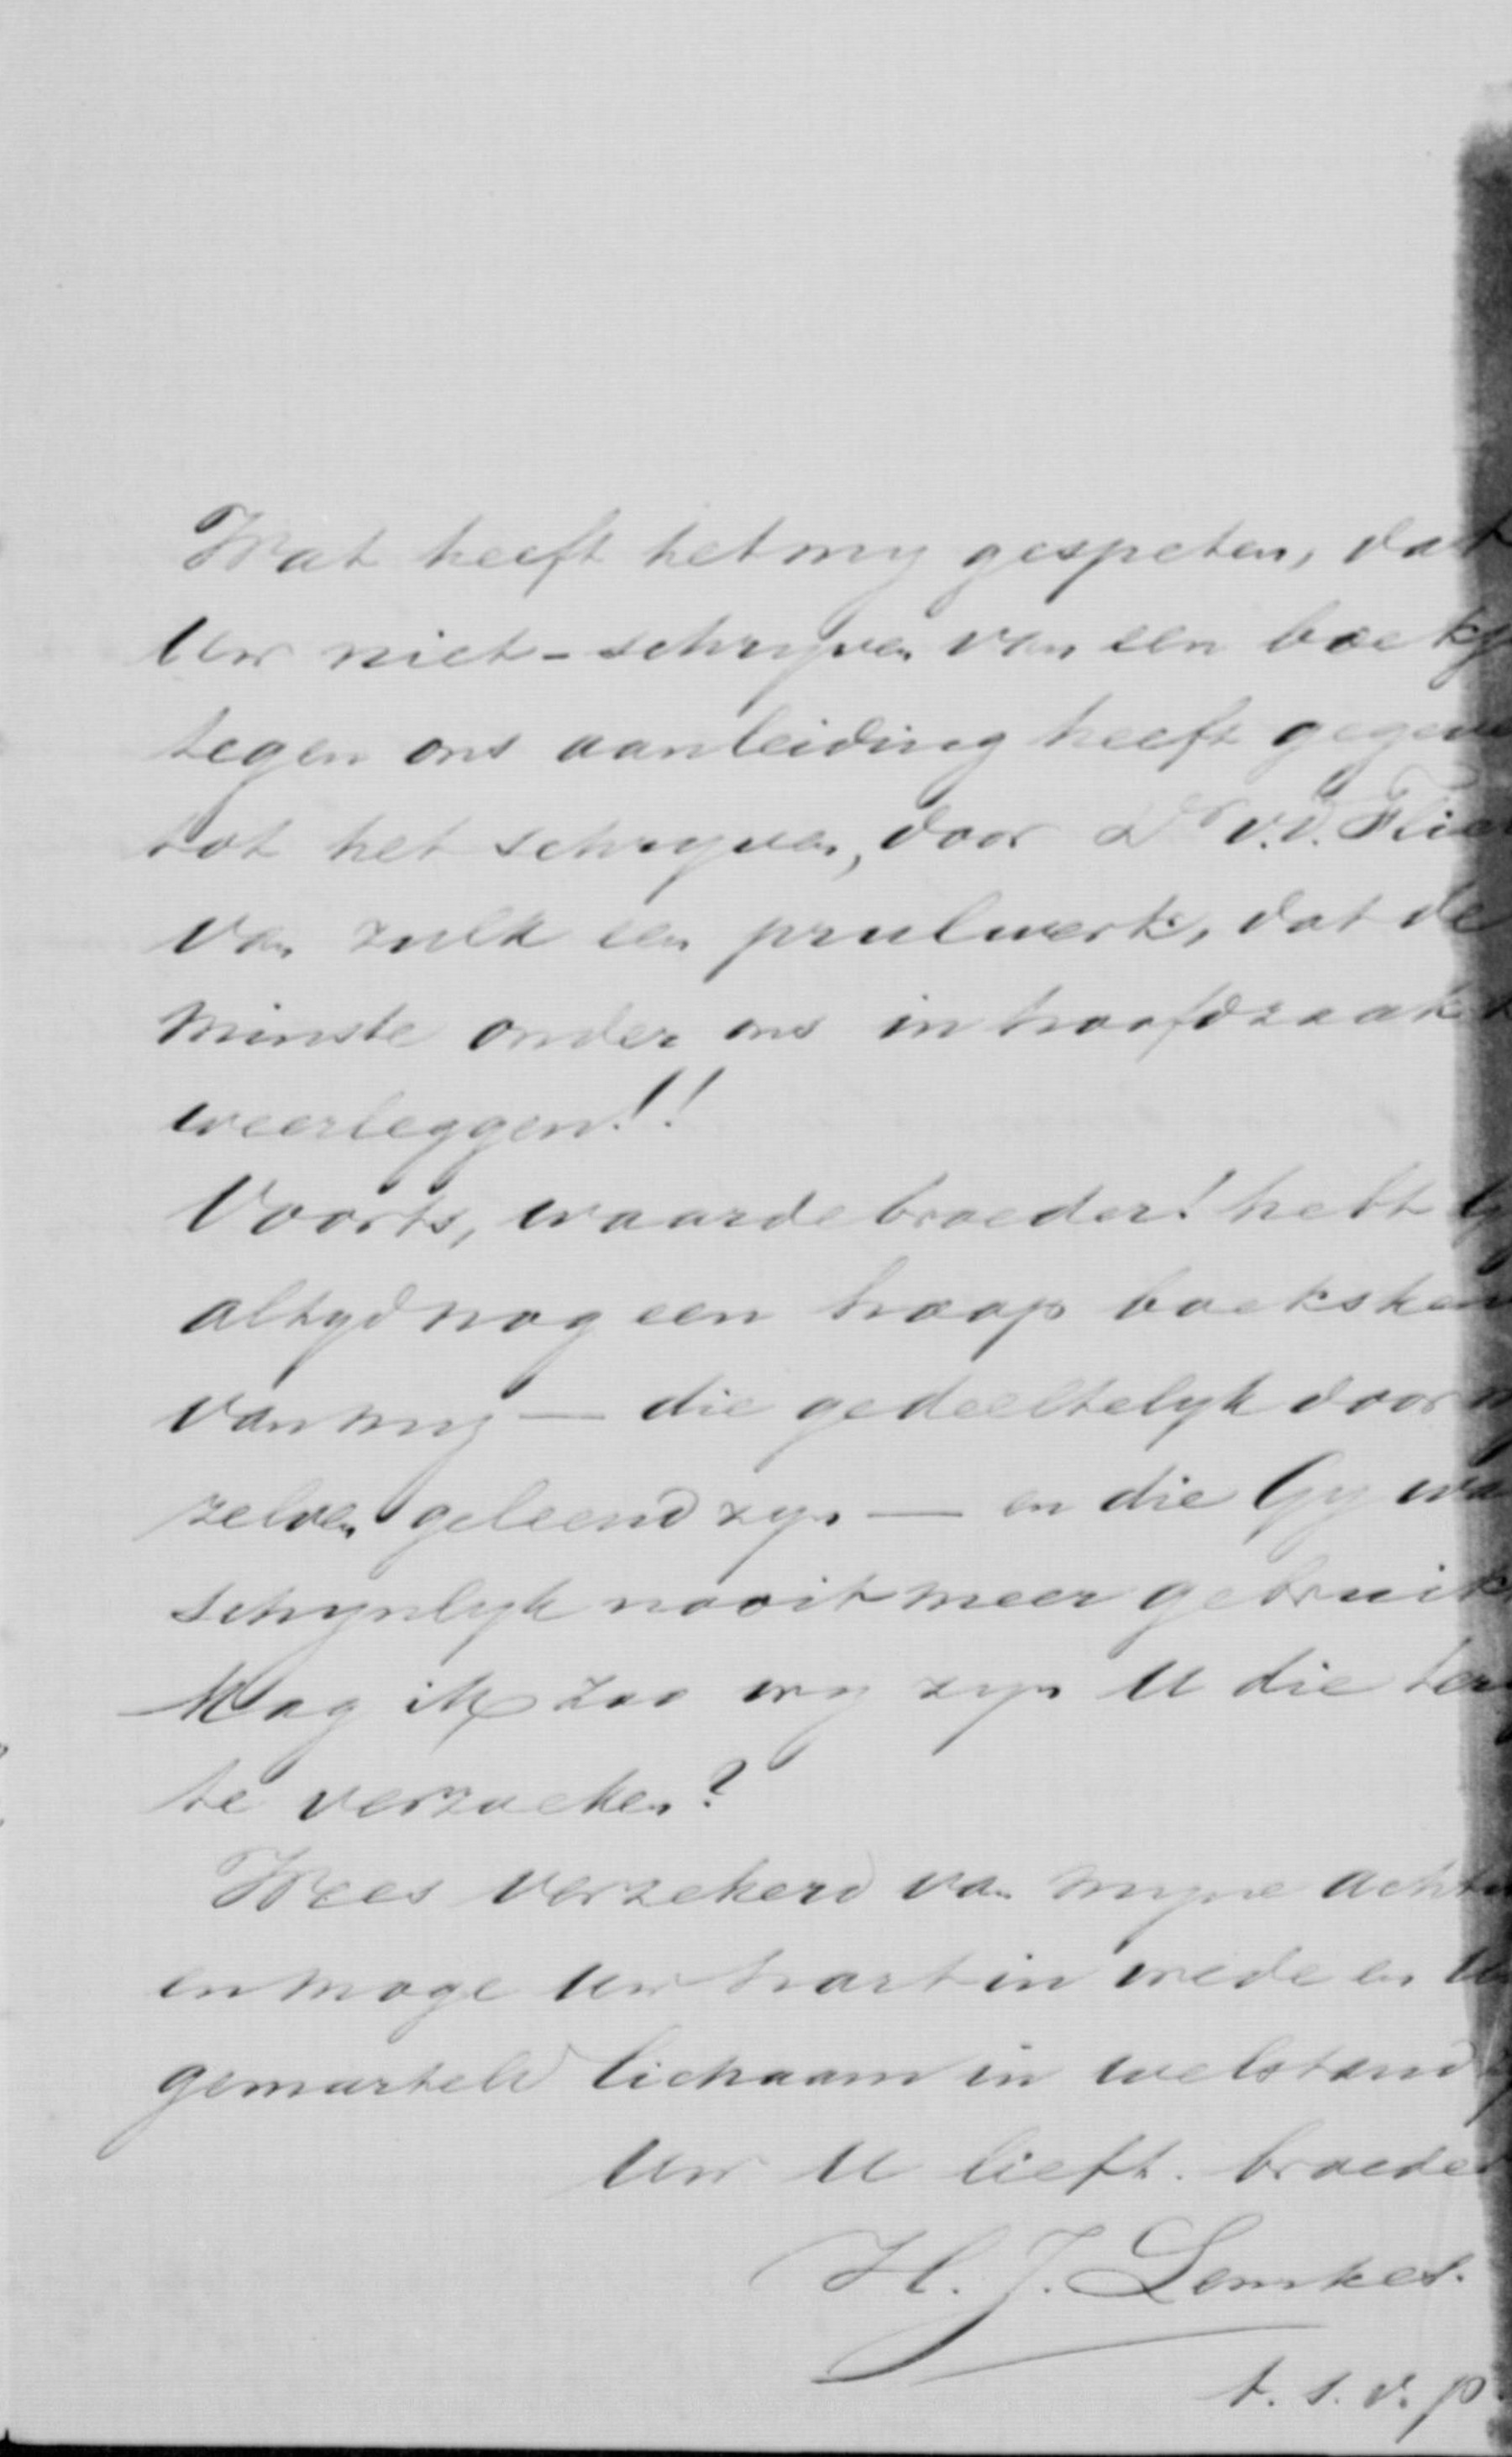 Wat heeft het my gespeten, dat
Uw niet-schryven van een boekj
tegen ons aanleiding heeft gegeve
tot het schryven, door Dr v.d. Flie
van zulk een prulwerk, dat de
minste onder ons in hoofdzaak k
weerleggen!!
Voorts, waarde broeder! hebt Gy
altyd nog een hoop boeksken
van my — die gedeeltelyk door m
zelven geleend zyn — en die Gy wa
schynlyk nooit meer gebruik
Mag ik zoo vry zyn U die ter
te verzoeken?
Wees verzekerd van myne acht
en moge Uw hart in vrede en U
gemarteld lichaam in welstand
Uw U liefh. broeder
H. J. Lemkes.
t. s. v. p